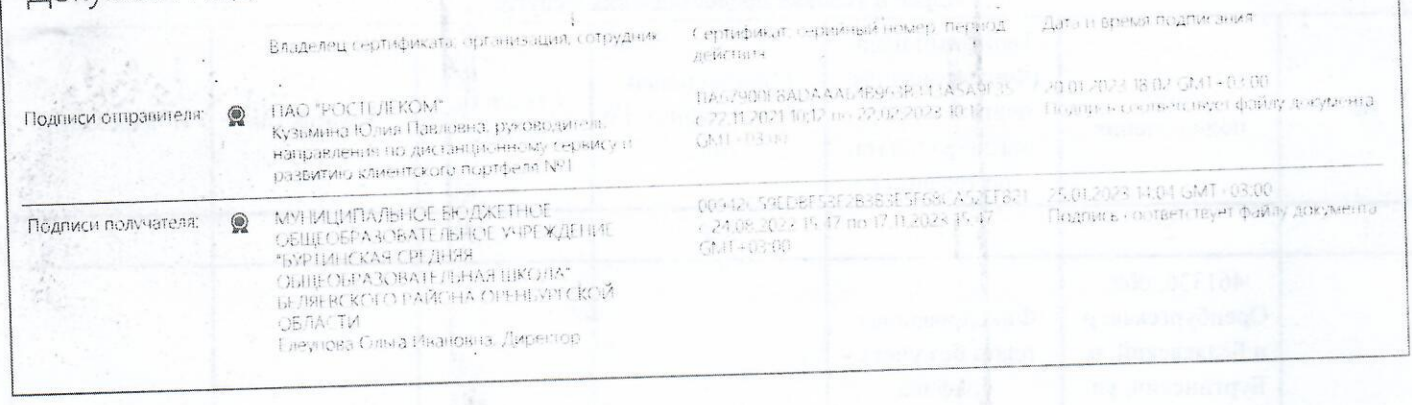 Владелец сертификата: организация, сотрудник
Сертификат: серийный номер, период действия
Дата и время подписания
Подписи отправителя:
ПАО "РОСТЕЛЕКОМ"
Кузьмина Юлия Павловна, руководитель
направления по дистанционному сервису и
развитию клиентского портфеля №1
с 22.11.2021 10:12 по 22.02.2023 10:12
GMT+03:00
20.01.2023 18:02 GMT+03:00
Подпись соответствует файлу документа
Подписи получателя:
МУНИЦИПАЛЬНОЕ БЮДЖЕТНОЕ
ОБЩЕОБРАЗОВАТЕЛЬНОЕ УЧРЕЖДЕНИЕ
"БУРТИНСКАЯ СРЕДНЯЯ
ОБЩЕОБРАЗОВАТЕЛЬНАЯ ШКОЛА"
БЕЛЯЕВСКОГО РАЙОНА ОРЕНБУРГСКОЙ
ОБЛАСТИ
Ольга Ивановна, Директор
с 24.08.2022 15:47 по 17.11.2023 15:47
GMT+03:00
25.01.2023 14:04 GMT+03:00
Подпись соответствует файлу документа